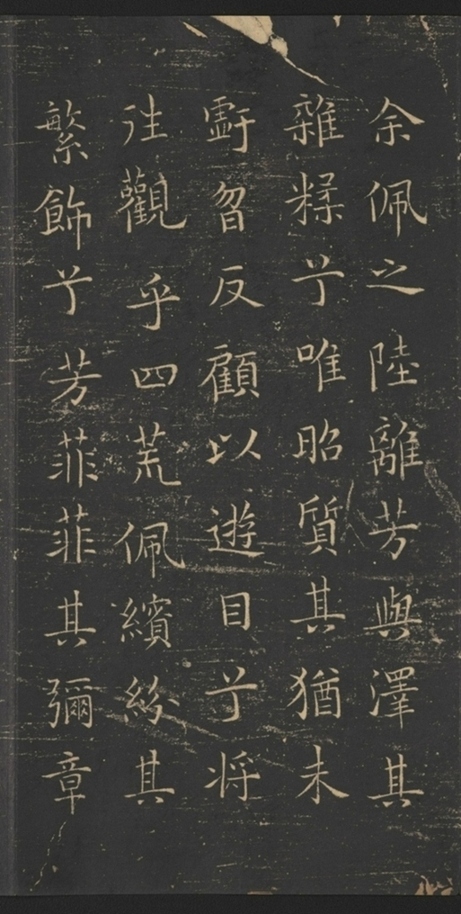 余佩之陸離芳與澤其
雜糅兮唯昭質其猶未
虧曶反顧以遊目兮将
往觀乎四荒佩繽紛其
繁飾兮芳菲菲其彌章